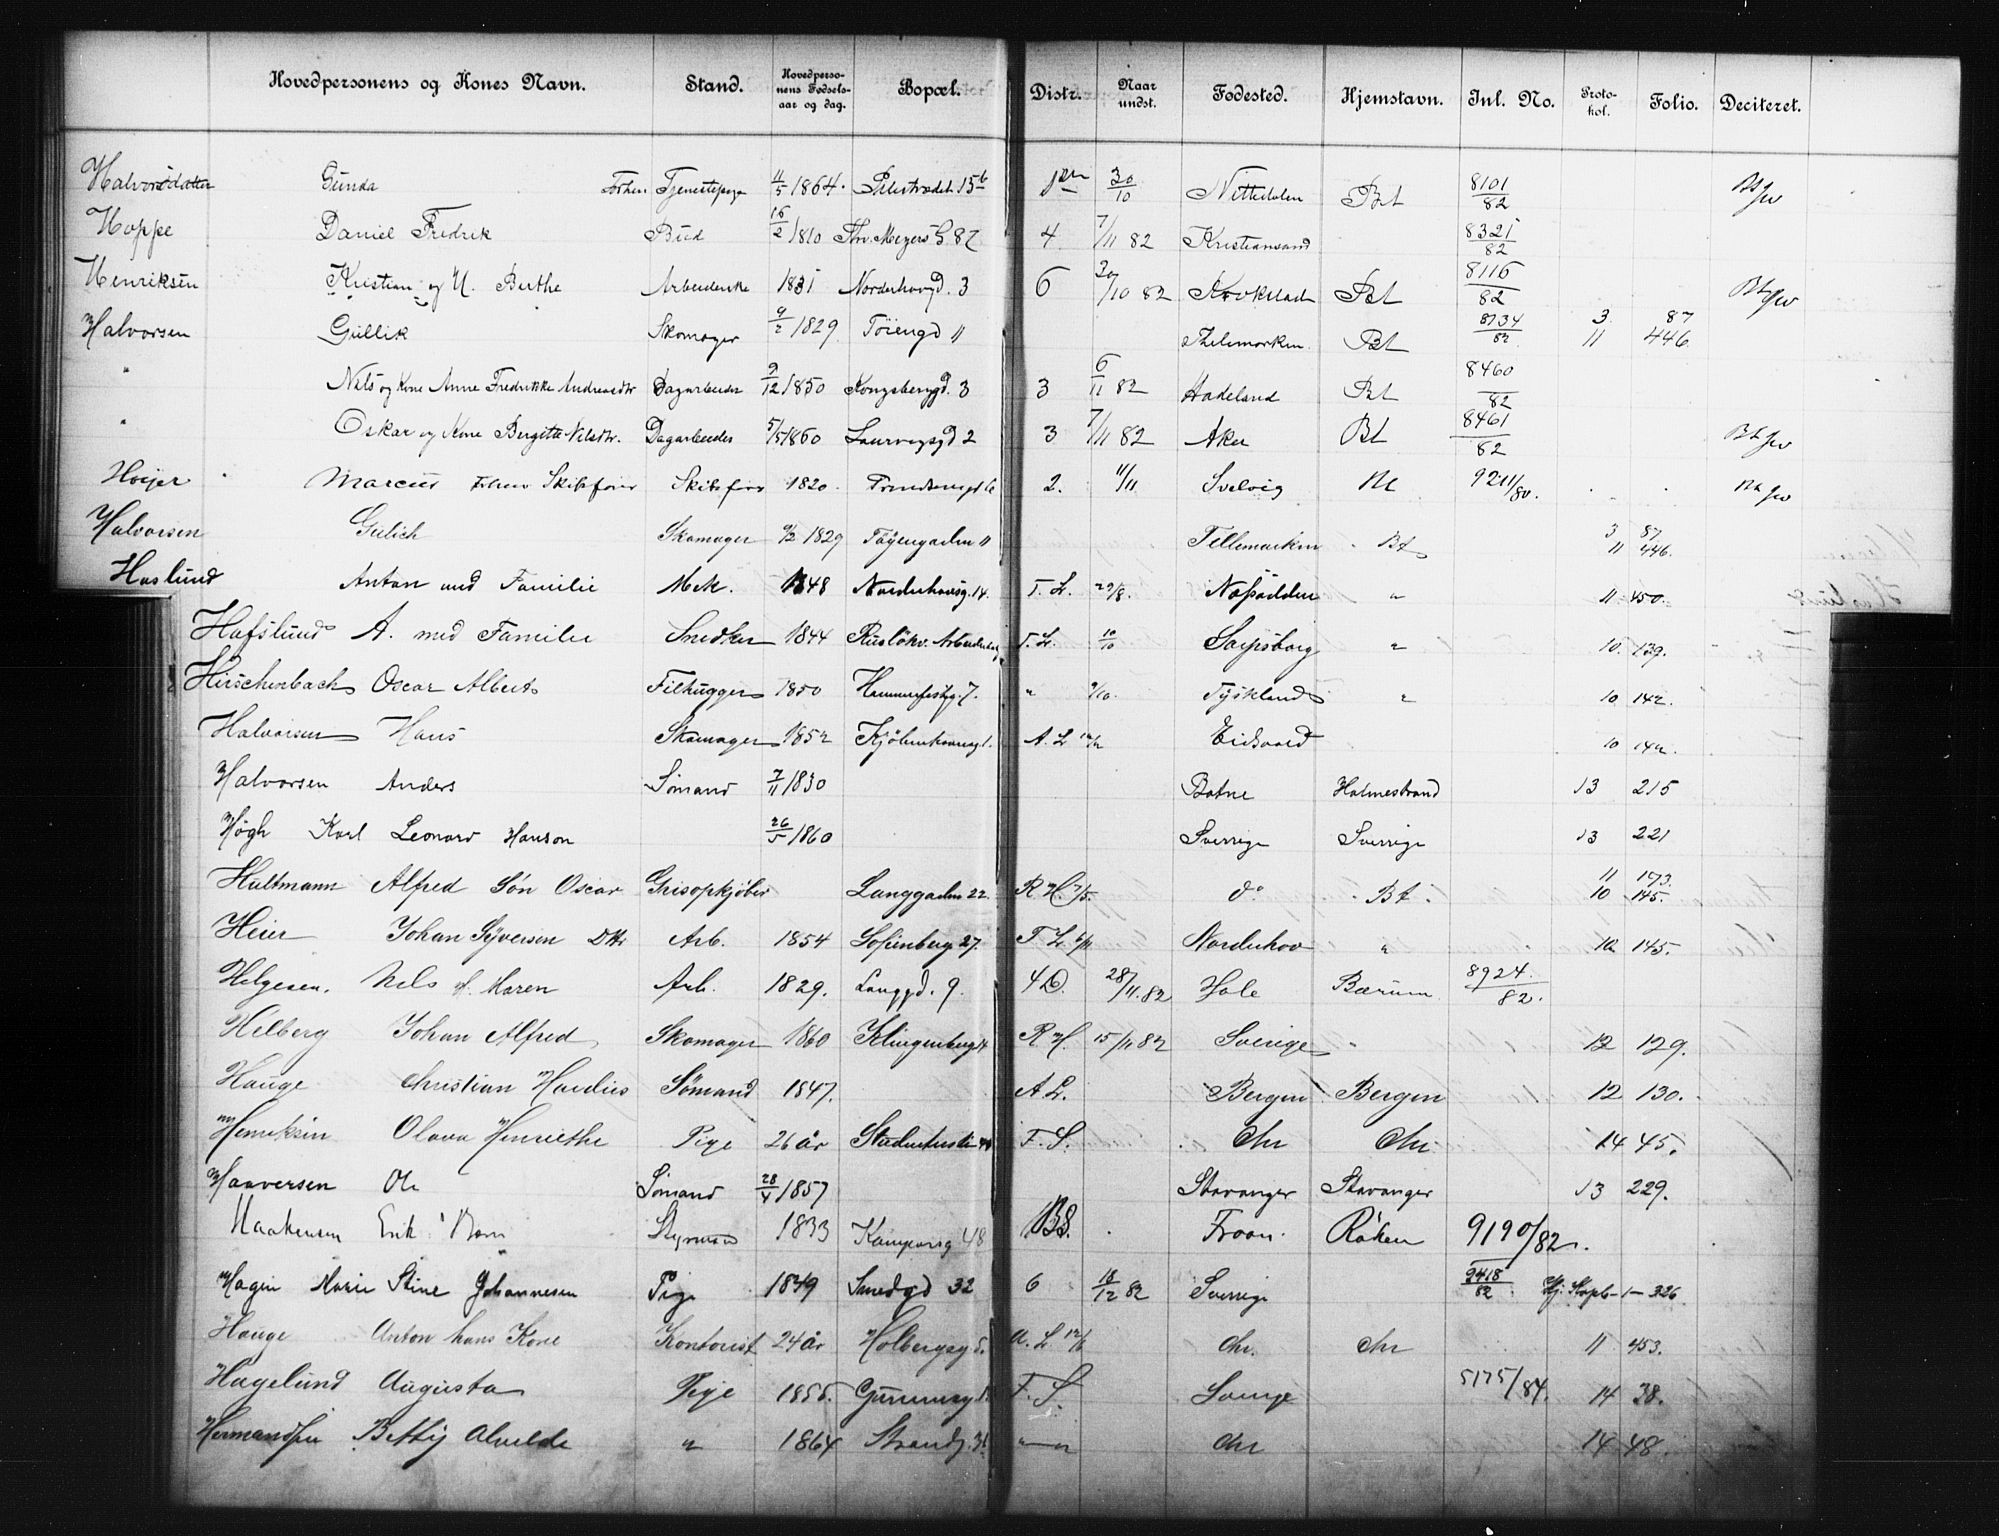 Hovedpersonens og Kones Navn. Stand. Hovedpersonens Fødselsaar og dag. Bopæl. Distr. Naar undst. Fødested. Hjemstavn. Inl. No. Protokol. Folio. Deciteret.
Halvorsdatter Gunda Tjenestepige 11/5 1864. 15b 30/10 Nittedalen Bt 8101/82
Hoppe Daniel Fredrik Bud 16/2 1810 Thv. Meyers G. 87 4 7/11 82 Kristiansand 8321/82
Henriksen Kristian og H. Berthe 1831 Norderhovgd. 3 6 30/10 82 Krokstad Bt 8116/82
Halvorsen Gullik Skomager 9/2 1829 Töiengd 11 Thelemarken Bt 8734/82 3 11 87 446
" Nils og Kone Anne Fredrikke Andreasdtr Dagarbeider 9/12 1850 Kongsberggd. 3 3 6/11 82 Hadeland Bt 8460/82
" Oskar og Kone Birgitte Nilsdtr. Dagarbeider 5/5 1860 Laurvigsgd 2 3 7/11 82 Aker Bt 8461/82
Höijer Marcus Skibsfører Skibsfører 1820. 2. 11/11 Svelvig Bt 9211/80.
Halvorsen Gulich Skomager 9/2 1829 Töyengaden 11 Tellemarken Bt 3 11 87 446.
Haslund Anton med Familie Mek. 1848 Norderhovsg. 14. T. L. 29/8. Næsodden " 11 450.
Hafslund A. med Familie Snedker 1844 Rusløkv. T. L. 10/10 Sarpsborg " 10. 139.
Hirschenbach Oscar Albert Filhugger 1850 Hammerfestg. 7. " 9/10. Tyskland " 10 142.
Halvorsen Hans Skomager 1852 A. L. Eidsvold 10 142.
Halvorsen Anders Sömand 7/11 1830 Botne Holmestrand 13 215
Høgh Karl Leonard Hanson 26/5 1860 Sverrige Sverrige 13 221
Hultmann Alfred Sön Oscar Grisopkjøber Langgaden 22. R. H. 7/5. do Bt. 11 10 193. 145.
Heier Johan Syversen Dtr Arb. 1854 Sofienberg 27. T. L. Norderhov " 10 145.
Helgesen. Nels H. Maren Arb. 1829. Langgd. 9. 4 D. 28/11. 82 Hole Bærum 8924./82.
Helberg Johan Alfred Skomager 1860 Klingenberg 4 R. H. 15/11 82 Sverige " 12 129.
Hauge Christian Hardius Sömand 1847. A L. Bergen Bergen 12 130.
Henriksen Olava Henriethe Pige 26 år T. S. Chr Chr. 14 45.
Haaversen Ole Sömand 28/4 1857 Stavanger Stavanger 13 229.
Haakensen Erik Styrmand 1833 Kampensg 48 BS. Froen. Röken 9190/82.
Hagen Marie Stine Johannesen Pige 1849 Smedgd 32 6 18/12 82 Sverrige 9418/82 1 – 326
Hauge Anton hans Kone Kontorist 24 år Holbergsg 5. A. L. Chr. Chr 11 453.
Hagelund Augusta Pige 1856. T. S. Sverige 5175/84. 14 38.
Hermandsen Betty Alvilde " 1864 Strandg. 36 " Chr 14 48.